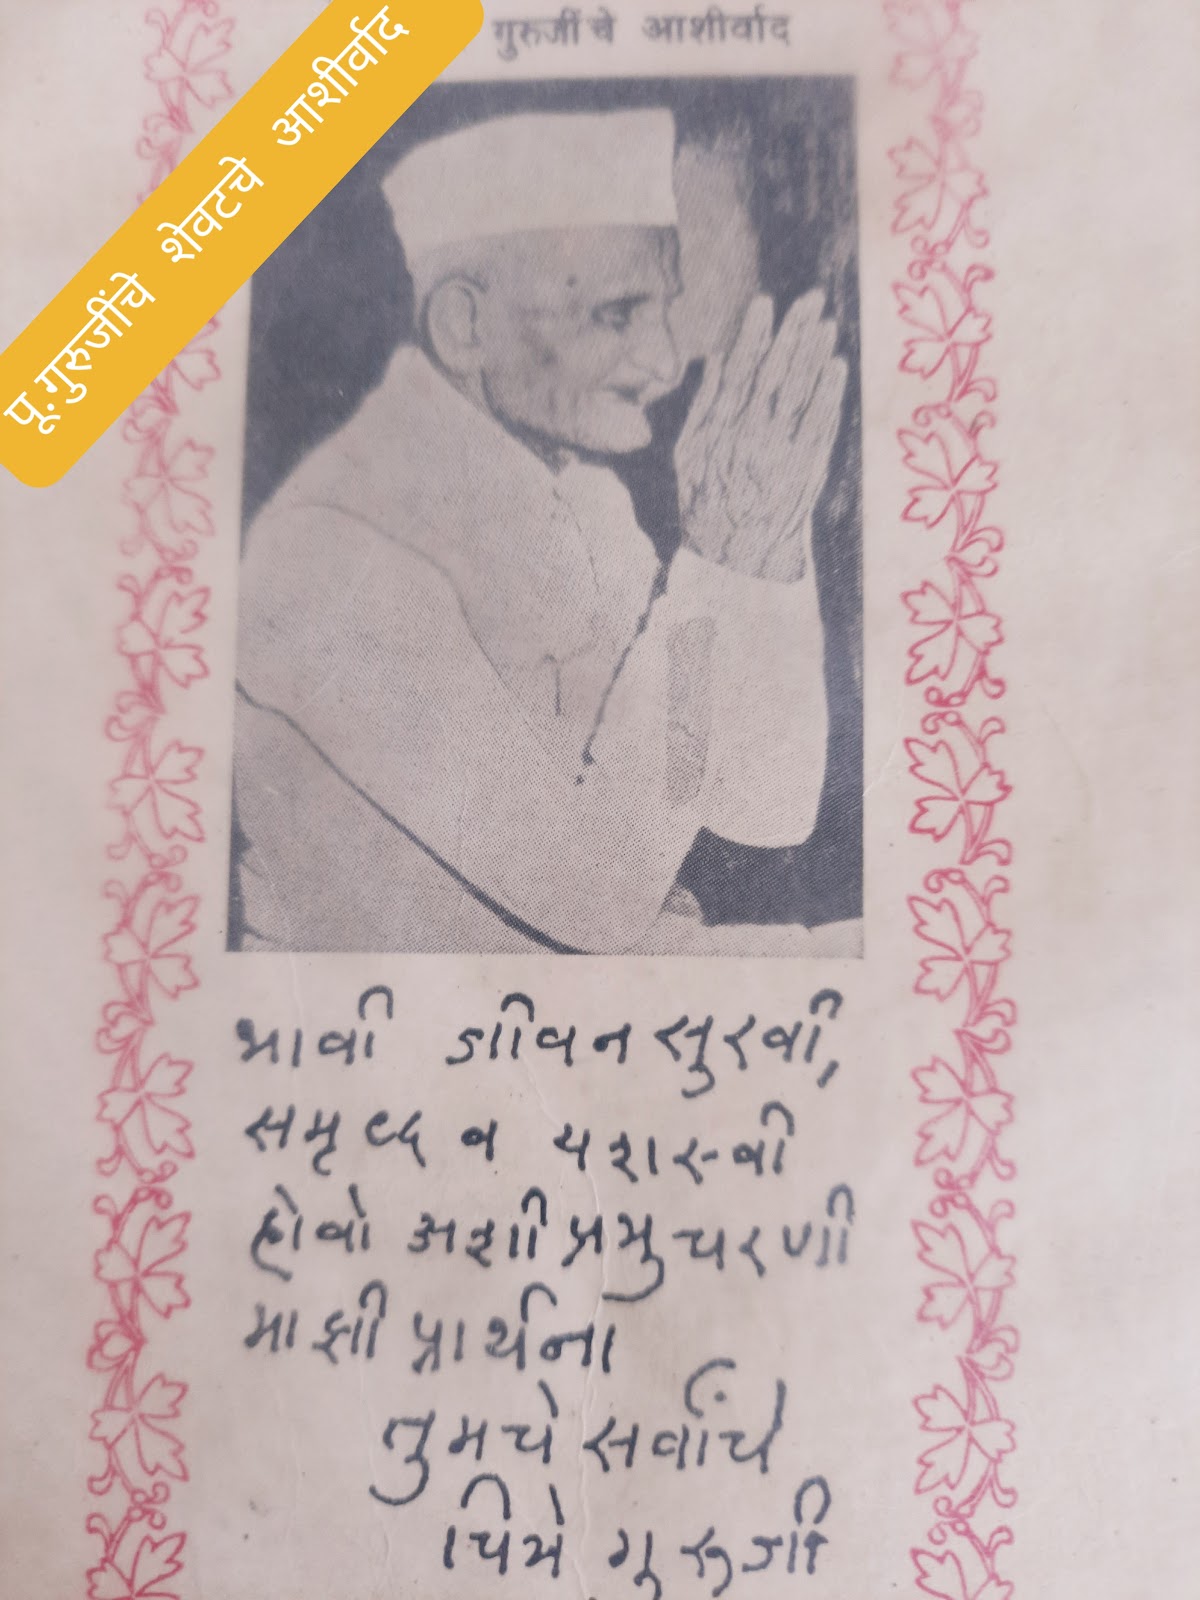 पू.गुरुजींचे शेवटचे आशीर्वाद
गुरुजींचे आशीर्वाद
भावी जीवन सुखी,
समृद्ध व यशस्वी
होवो अशी प्रभु चरणी
माझी प्रार्थना
तुमचे सर्वांचे
गुरुजी